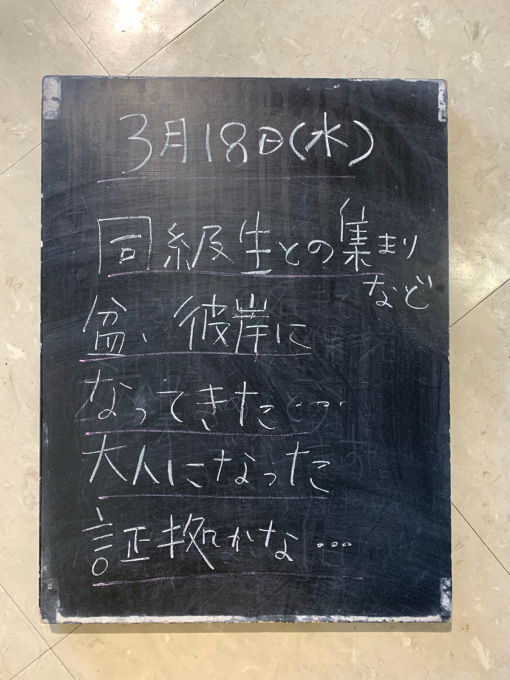 3月18日(水)
同級生との集まり
など
盆、彼岸に
なってきた…
大人になった
証拠かな…